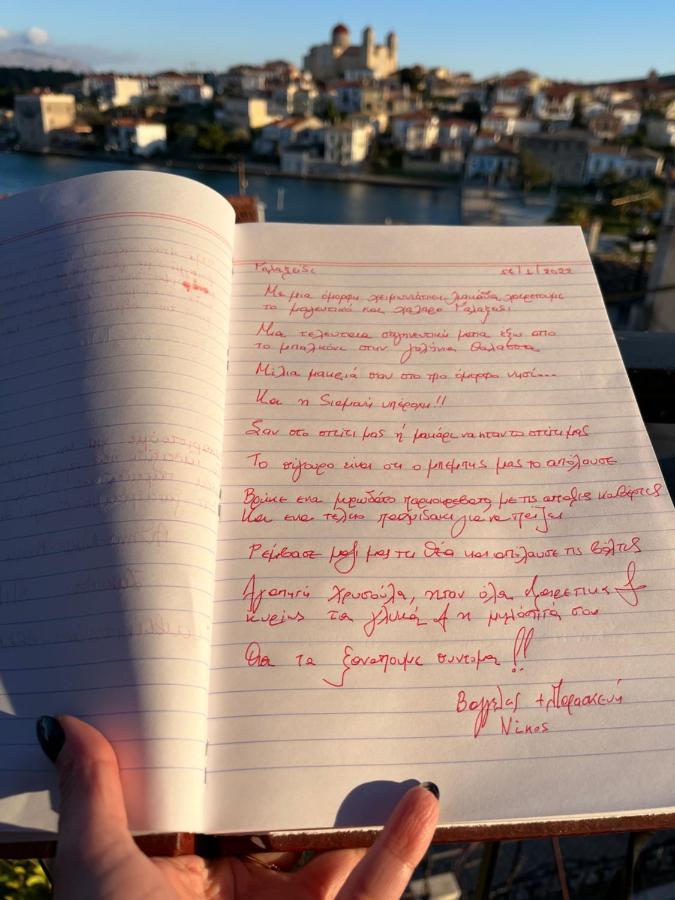 Γαλαξείδι 56/1/2022
Με μια όμορφη χειμωνιάτικη λιακάδα χαιρετούμε
το μαγευτικό και χαλαρό Γαλαξείδι
Μια τελευταία ματιά έξω απο
το μπαλκόνι στην γαλήνια θάλασσα
Μίλια μακριά σου στο πιο όμορφο νησί...
Και η διαμονή υπέροχη!!
Σαν στο σπίτι μας ή μακάρι να ηταν το σπίτι μας
Το σίγουρο είναι οτι ο μπέμπης μας το απόλαυσε
Βρήκε ενα μυρωδάτο παρκοκρεβατο με τις απαλές κουβέρτες
Και ενα τέλειο για να παίζει
Ρέμβασε μαζί μας τη θέα και απόλαυσε τις βόλτες
Αγαπητή Χρυσούλα, ηταν όλα εξαιρετικά &
κυρίως τα γλυκά & η μηλόπιτά σου
Θα τα ξαναπούμε συντομα !!
Βαγγέλης + Παρασκευή
Νίκος